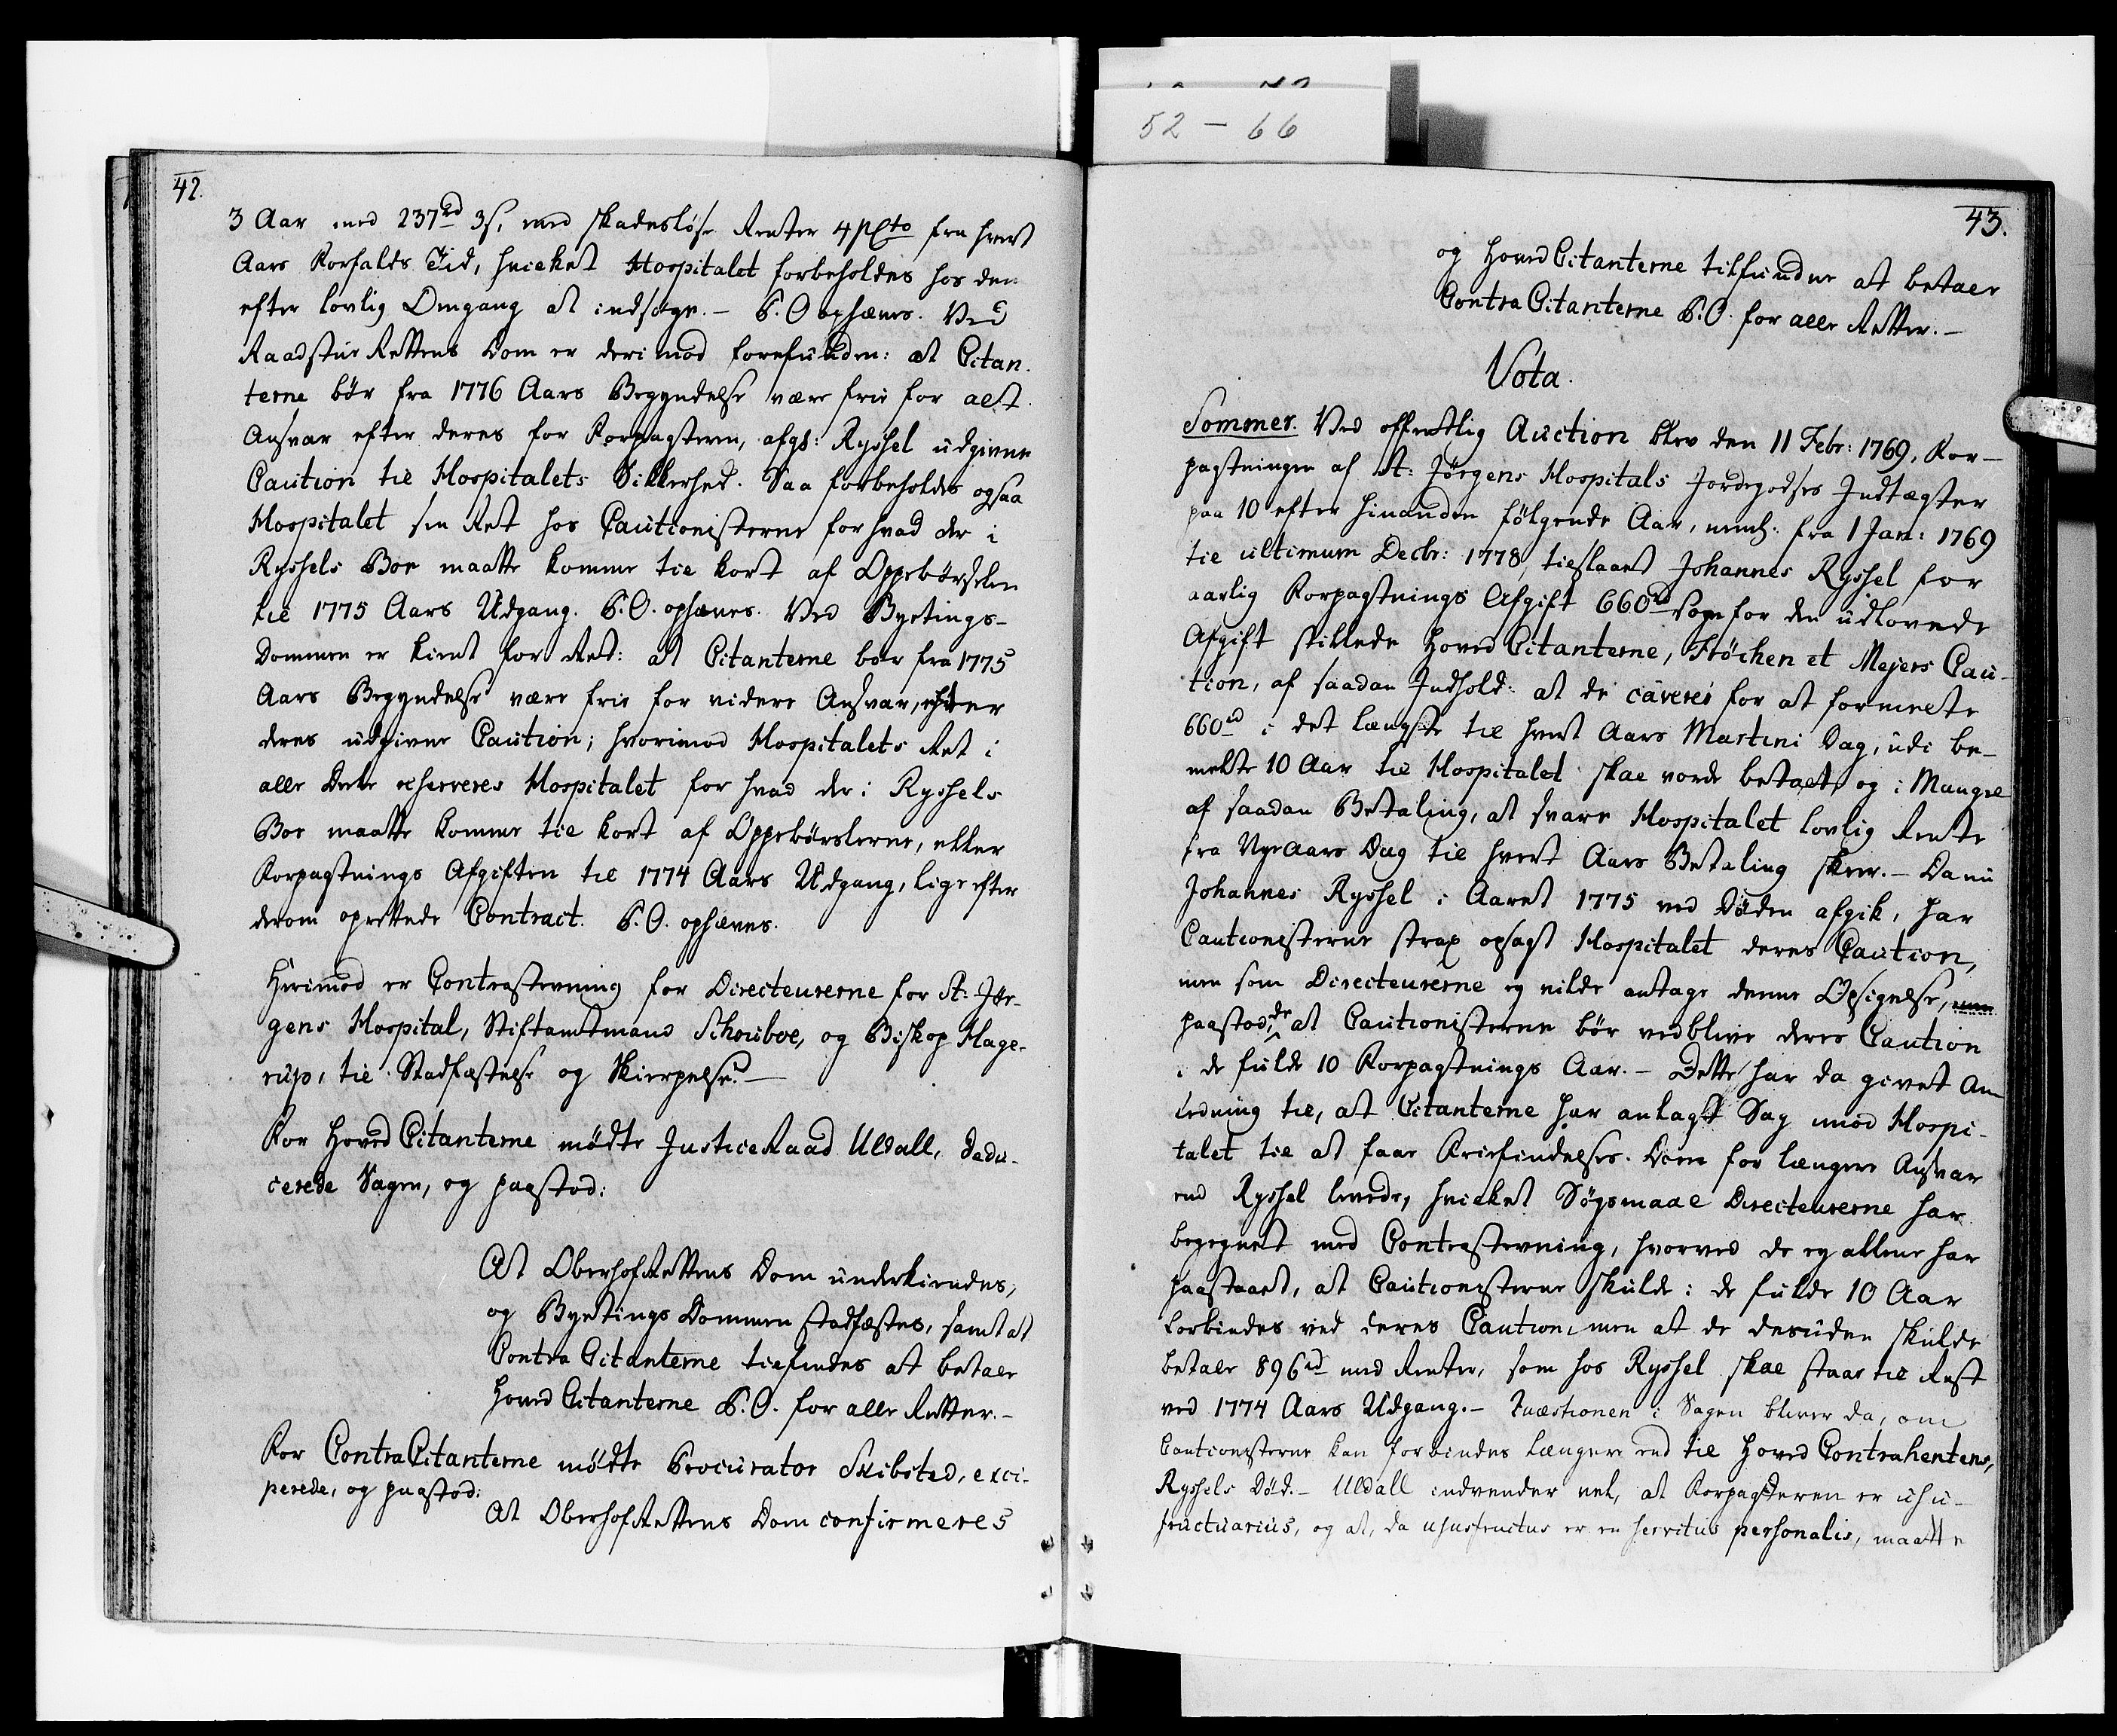 52 - 66
42.
3 Aar med 237rd 3s, med skadesløse Renter 4 pCto fra hvert
Aars Forfalds Tid, hvilket Hospitalet forbeholdes hos dem
efter lovlig Omgang at indsøge. - P. O. ophæves. Ved
Raadstue Rettens Dom er derimod forefunden: at Citan-
terne bør fra 1776 Aars Begyndelse være frie for alt
Ansvar efter deres for Forpagteren, afgl: Ryssel udgivne
Caution til Hospitalets Sikkerhed. Saa forbeholdes ogsaa
Hospitalet sin Ret hos Cautionisterne for hvad der i
Ryssels Boe maatte komme til kort af Oppebørselen
til 1775 Aars Udgang. P. O. ophæves. Ved Byetings-
Dommen er kient for Ret: at Citanterne bør fra 1775
Aars Begyndelse være frie for videre Ansvar, efter
deres udgivne Caution; hvorimod Hospitalets Ret i
alle Dele reserveres Hospitalet for hvad der i Ryssels
Boe maatte komme til kort af Oppebørslerne, eller
Forpagtnings Afgiften til 1774 Aars Udgang, lige efter
derom oprettede Contract. P. O. ophæves.
Herimod er Contrastevning for Directeurerne for St: Jør-
gens Hospital, Stiftamtmand Schouboe, og Biskop Hage-
rup, til Stadfæstelse og Skierpelse. -
For Hoved Citanterne mødte Justice Raad Uldall, dedu-
cerede Sagen, og paastod:
At Oberhof Rettens Dom underkiendes,
og Byetings Dommen stadfæstes, samt at
Contra Citanterne tilfindes at betale
Hoved Citanterne P. O. for alle Retter. -
For Contra Citanterne mødte Procurator Skibsted, exci-
perede, og paastod:
At Oberhof Rettens Dom confirmeres
43.
og Hoved Citanterne tilfindes at betale
Contra Citanterne P. O. for alle Retter. -
Vota.
Sommer. Ved offentlig Auction blev den 11 Febr: 1769, For-
pagtningen af St: Jørgens Hospitals Jordegodses Indtægter
paa 10 efter hinanden følgende Aar, neml: fra 1 Jan: 1769
til ultimum Decbr: 1778, tilslaaet Johannes Ryssel for
aarlig Forpagtnings Afgift 660rd for den udlovede
Afgift stillede Hoved Citanterne, Støchen et Mejers Cau-
tion, af saadan Indhold: at de caverer for at formeldte
660rd i det længste til hvert Aars Martini Dag, udi be-
meldte 10 Aar til Hospitalet skal vorde betalt, og i Mangel
af saadan Betaling, at svare Hospitalet lovlig Rente
fra Nye Aars Dag til hvert Aars Betaling skeer. - Da nu
Johannes Ryssel i Aaret 1775 ved Døden afgik, har
Cautionisterne strax opsagt Hospitalet deres Caution,
men som Directeurerne ej vilde antage denne Opsigelse, men
paastod, de at Cautionisterne bør vedblive deres Caution
i de fulde 10 Forpagtnings Aar. - Dette har da givet An-
ledning til, at Citanterne har anlagt Sag imod Hospi-
talet til at faae Friefindelses Dom for længere Ansvar
end Ryssel levede, hvilket Søgsmaal Directeurerne har
begegnet med Contrastevning, hvorved de ej allene har
paastaaet, at Cautionisterne skulde i de fulde 10 Aar
forbindes ved deres Caution, men at de desuden skulde
betale 896rd med Renter, som hos Ryssel skal staae til Rest
ved 1774 Aars Udgang. - Quæstionen i Sagen bliver da, om
Cautionisterne kan forbindes længere end til Hoved Contrahentens,
Ryssels Død. - Uldall indvender vel, at Forpagteren er usu-
fructuarius, og at, da ususfructus er en servitus personalis, maatte